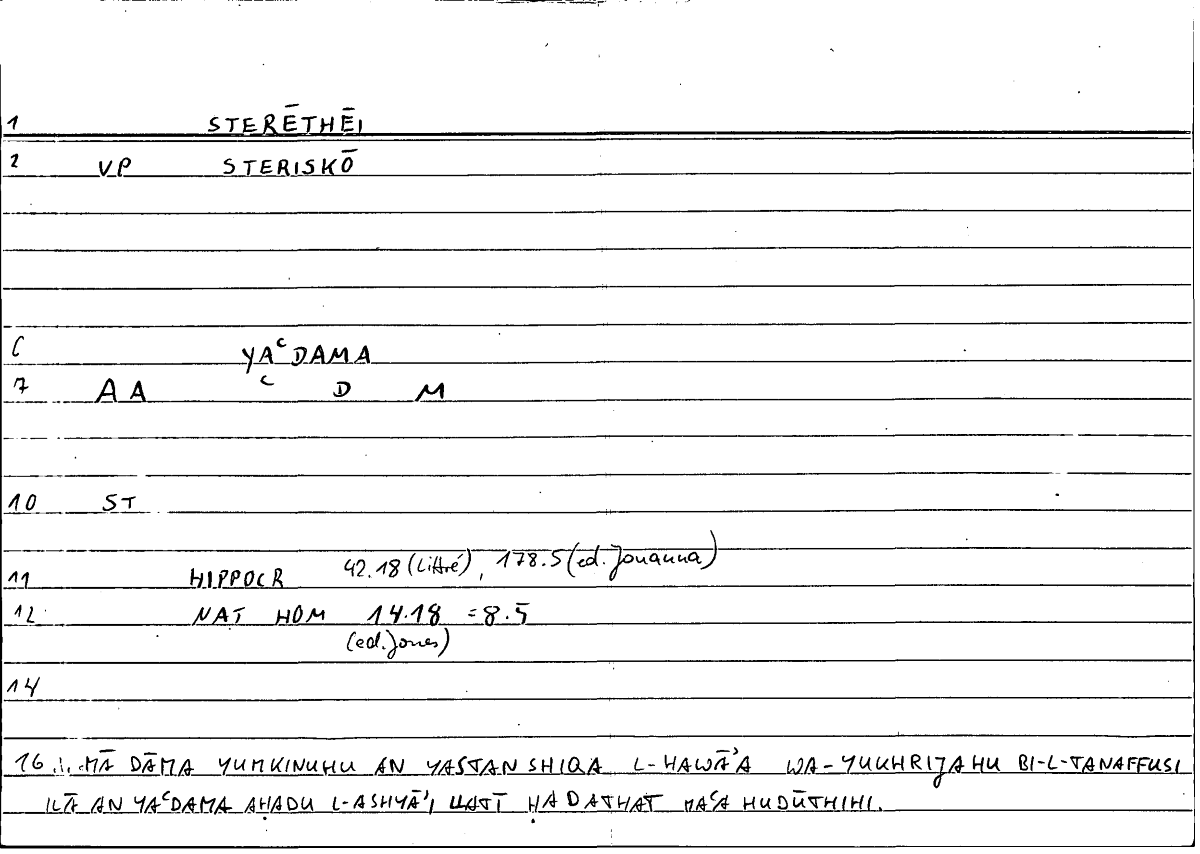 1 STERĒTHĒI
2 VP STERISKŌ
6 YAᶜDAMA
7 AA ᶜ D M
10 ST
42.18 (Littré), 178.5 (ed. Jouanna)
11 HIPPOCR
12 NAT HOM 14.18 = 8.5
(ed. Jones)
14
16 MĀ DĀMA YUMKINUHU AN YASTANSHIQA L-HAWĀʾA WA-YUKHRIJAHU BI-L-TANAFFUSI
ILĀ AN YAᶜDAMA AḤADU L-ASHYĀʾI LLATĪ ḤADATHAT MAᶜA HUDŪTHIHI.